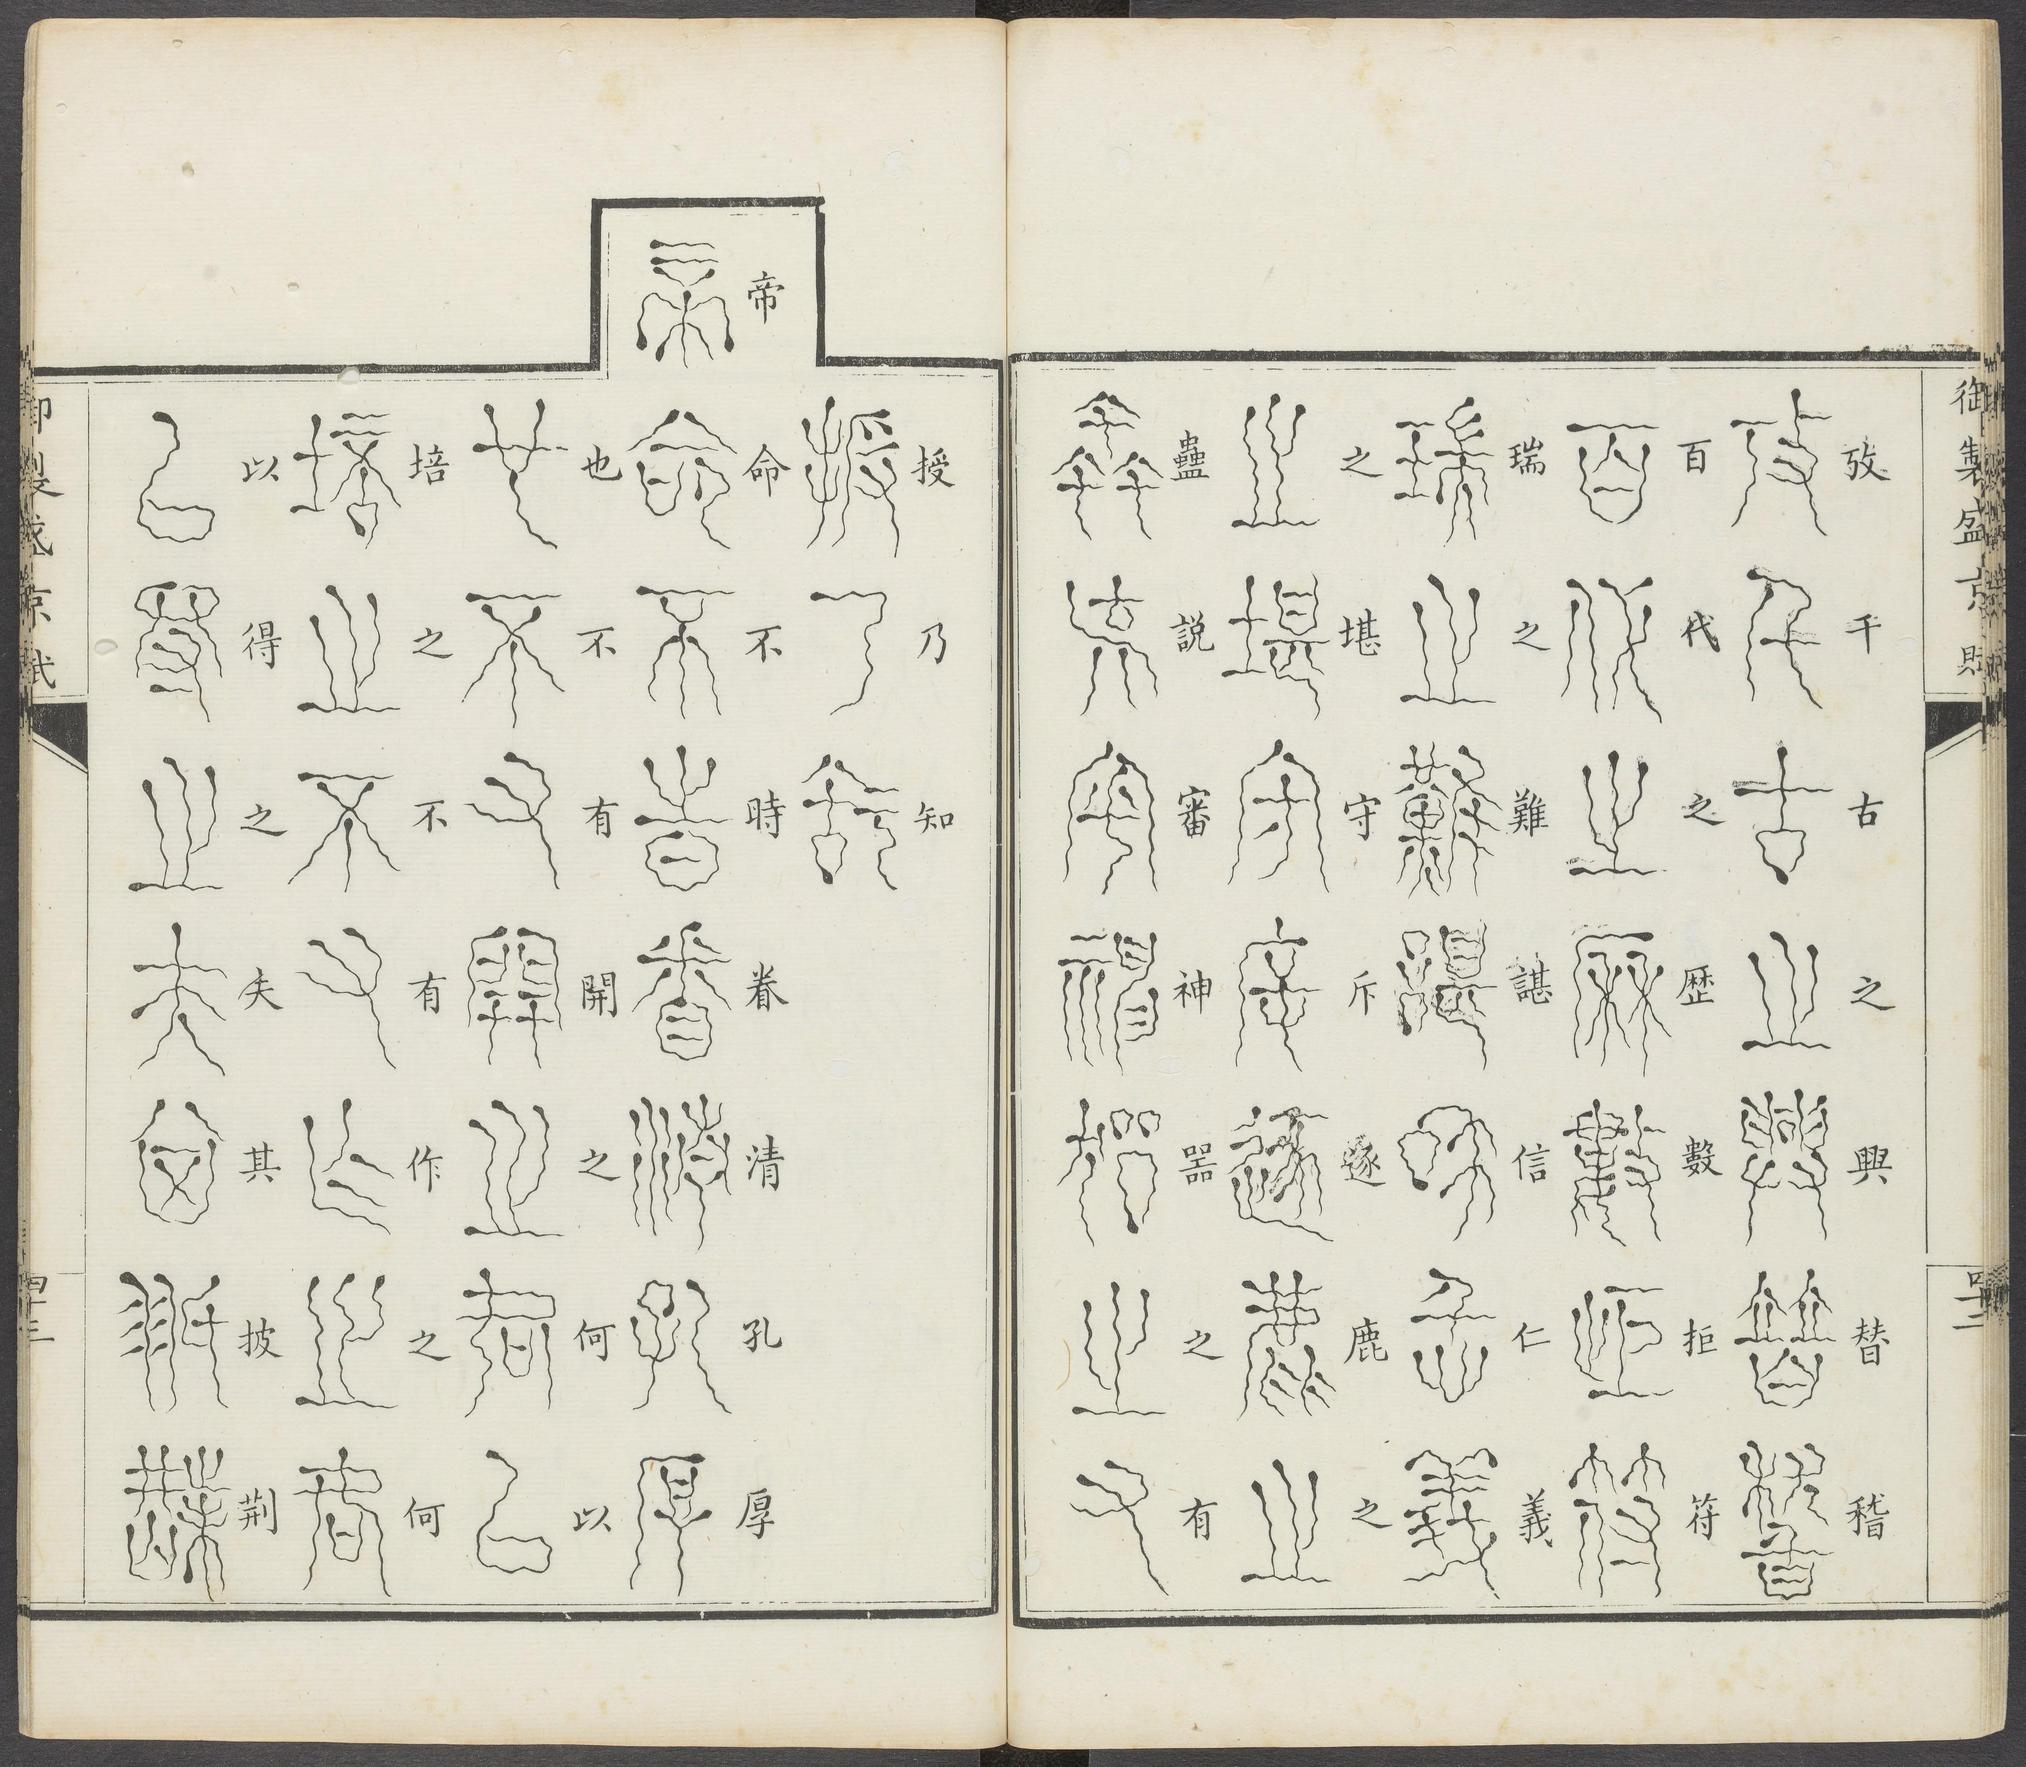 御製盛京賦
攷千古之興替稽
百代之歷數拒符
瑞之難諶信仁義
之堪守斥逐鹿之
蠱說審神器之有
四十二
授乃知
帝命不時眷清孔厚
也不有開之何以
培之不有作之何
以得之矢其披荆
御製盛京賦
四十三